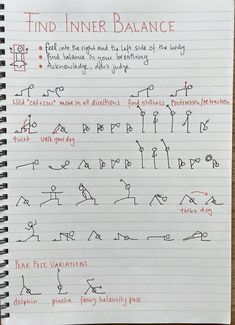 FIND INNER BALANCE
feel into the right and the left side of the body
find balance in your breathing
Acknowledge, don't judge
Wild "cat & cow" move in all directions find stillness protraction/retraction
twist walk your dog
turbo dog
PEAK POSE VARIATIONS
dolphin pincha fancy balancing pose